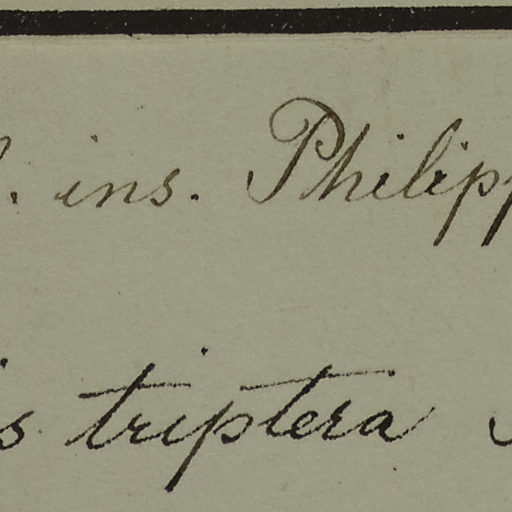 . ins. Philipp
s triptera